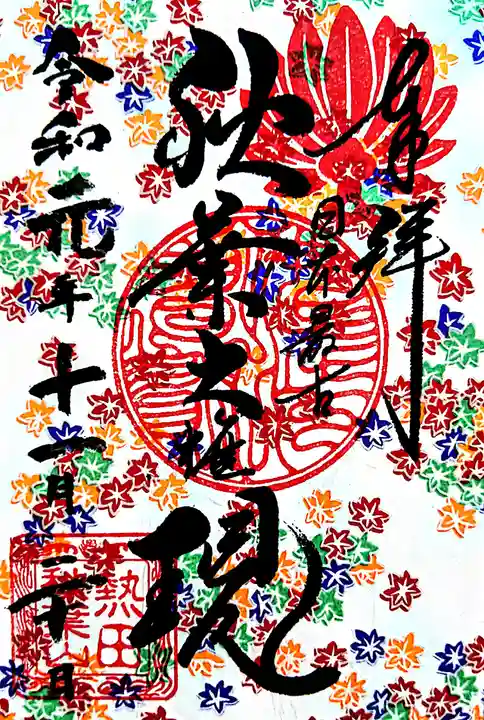 奉拝
日本最古
秋葉大権現
令和元年十一月二十日
熱田